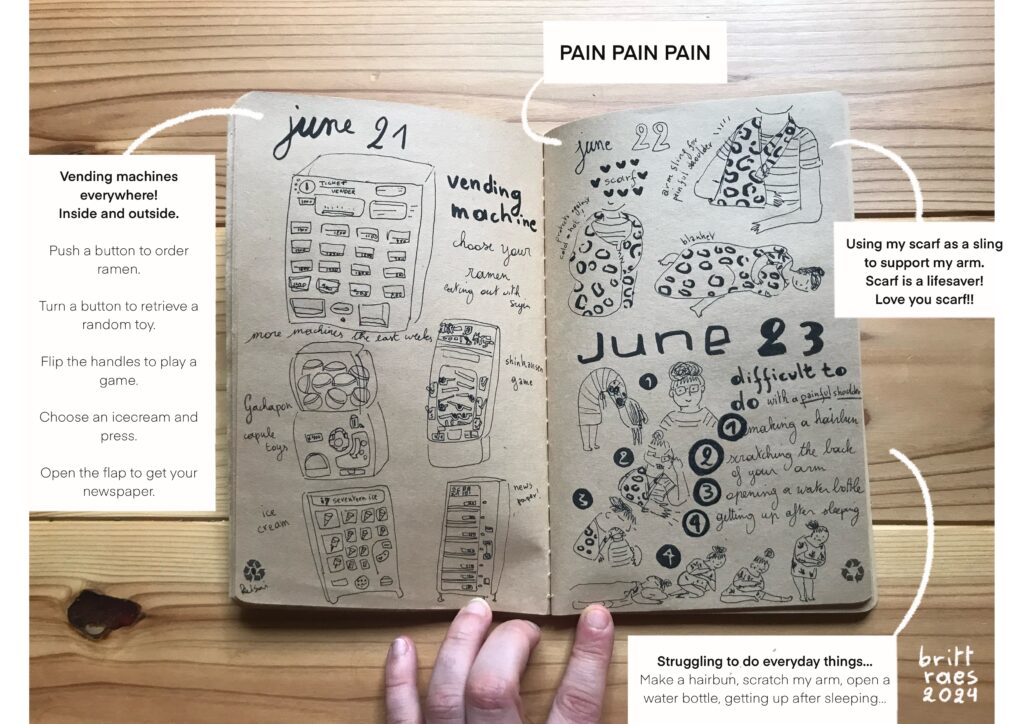 PAIN PAIN PAIN
Vending machines
everywhere!
Inside and outside.
Push a button to order
ramen.
Turn a button to retrieve a
random toy.
Flip the handles to play a
game.
Choose an icecream and
press.
Open the flap to get your
newspaper.
june 21
TICKET
VENDER
vending
machine
choose your
ramen
eating out with
more machines the last weeks
Gachapon
capule
toys
shinkansen
game
ice
cream
seventeen ice
news
paper!
june 22
scarf
protects against
cold + hot
arm sling for
painful shoulder
blanket
Using my scarf as a sling
to support my arm.
Scarf is a lifesaver!
Love you scarf!!
june 23
difficult to
do with a painful shoulder
1 making a hairbun
2 scratching the back
of your arm
3 opening a water bottle
4 getting up after sleeping
1
2
3
4
Struggling to do everyday things...
Make a hairbun, scratch my arm, open a
water bottle, getting up after sleeping...
britt
raes
2024